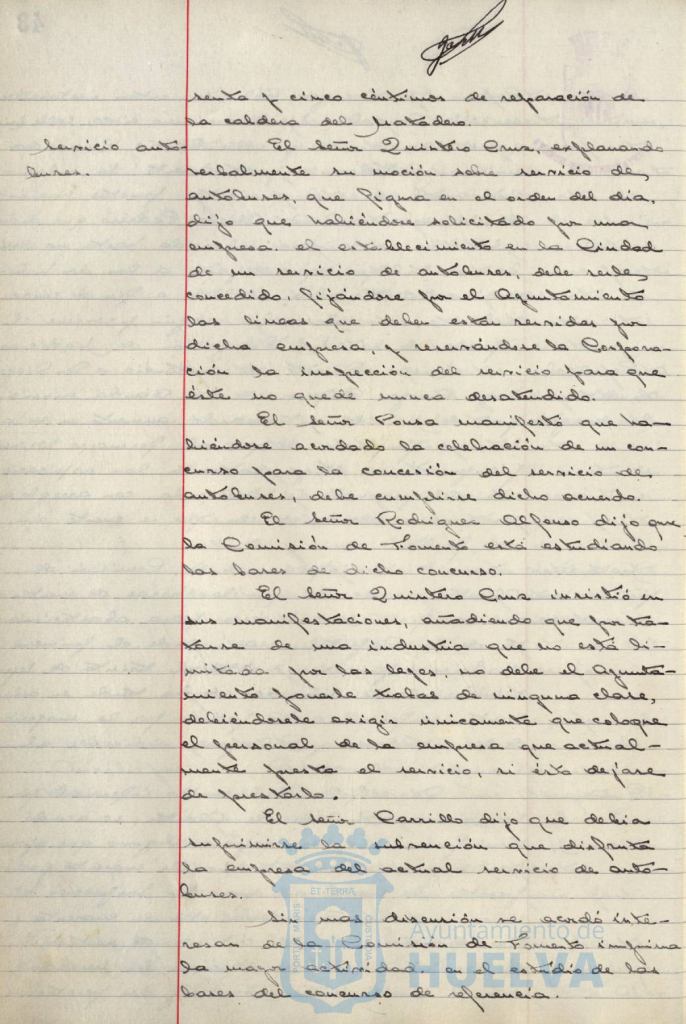 senta y cinco céntimos de reparación de
la caldera del Matadero.
Servicio auto-
buses.
El Señor Quintero Cruz, explanando
verbalmente su moción sobre servicio de
autobuses, que figura en el orden del día,
dijo que habiéndose solicitado por una
empresa el establecimiento en la Ciudad
de un servicio de autobuses, debe serle
concedido, fijándose por el Ayuntamiento
las líneas que deben estar servidas por
dicha empresa, y reservándose la Corpora-
ción la inspección del servicio para que
éste no quede nunca desatendido.
El Señor Ponsa manifestó que ha-
biéndose acordado la celebración de un con-
curso para la concesión del servicio de
autobuses, debe cumplirse dicho acuerdo.
El Señor Rodríguez Alfonso dijo que
la Comisión de Fomento está estudiando
las bases de dicho concurso.
El Señor Quintero Cruz insistió en
sus manifestaciones, añadiendo que por tra-
tarse de una industria que no está li-
mitada por las leyes, no debe el Ayunta-
miento ponerle trabas de ninguna clase,
debiéndosele exigir únicamente que coloque
el personal de la empresa que actual-
mente presta el servicio, si ésta dejase
de prestarlo.
El Señor Carrillo dijo que debía
suprimirse la subvención que disfruta
la empresa del actual servicio de auto-
buses.
Sin mas discusión se acordó inte-
resar de la Comisión de Fomento imprima
la mayor actividad en el estudio de las
bases del concurso de referencia.
PORTUS MARIS ET TERRÆ CUSTODIA
Ayuntamiento de
HUELVA